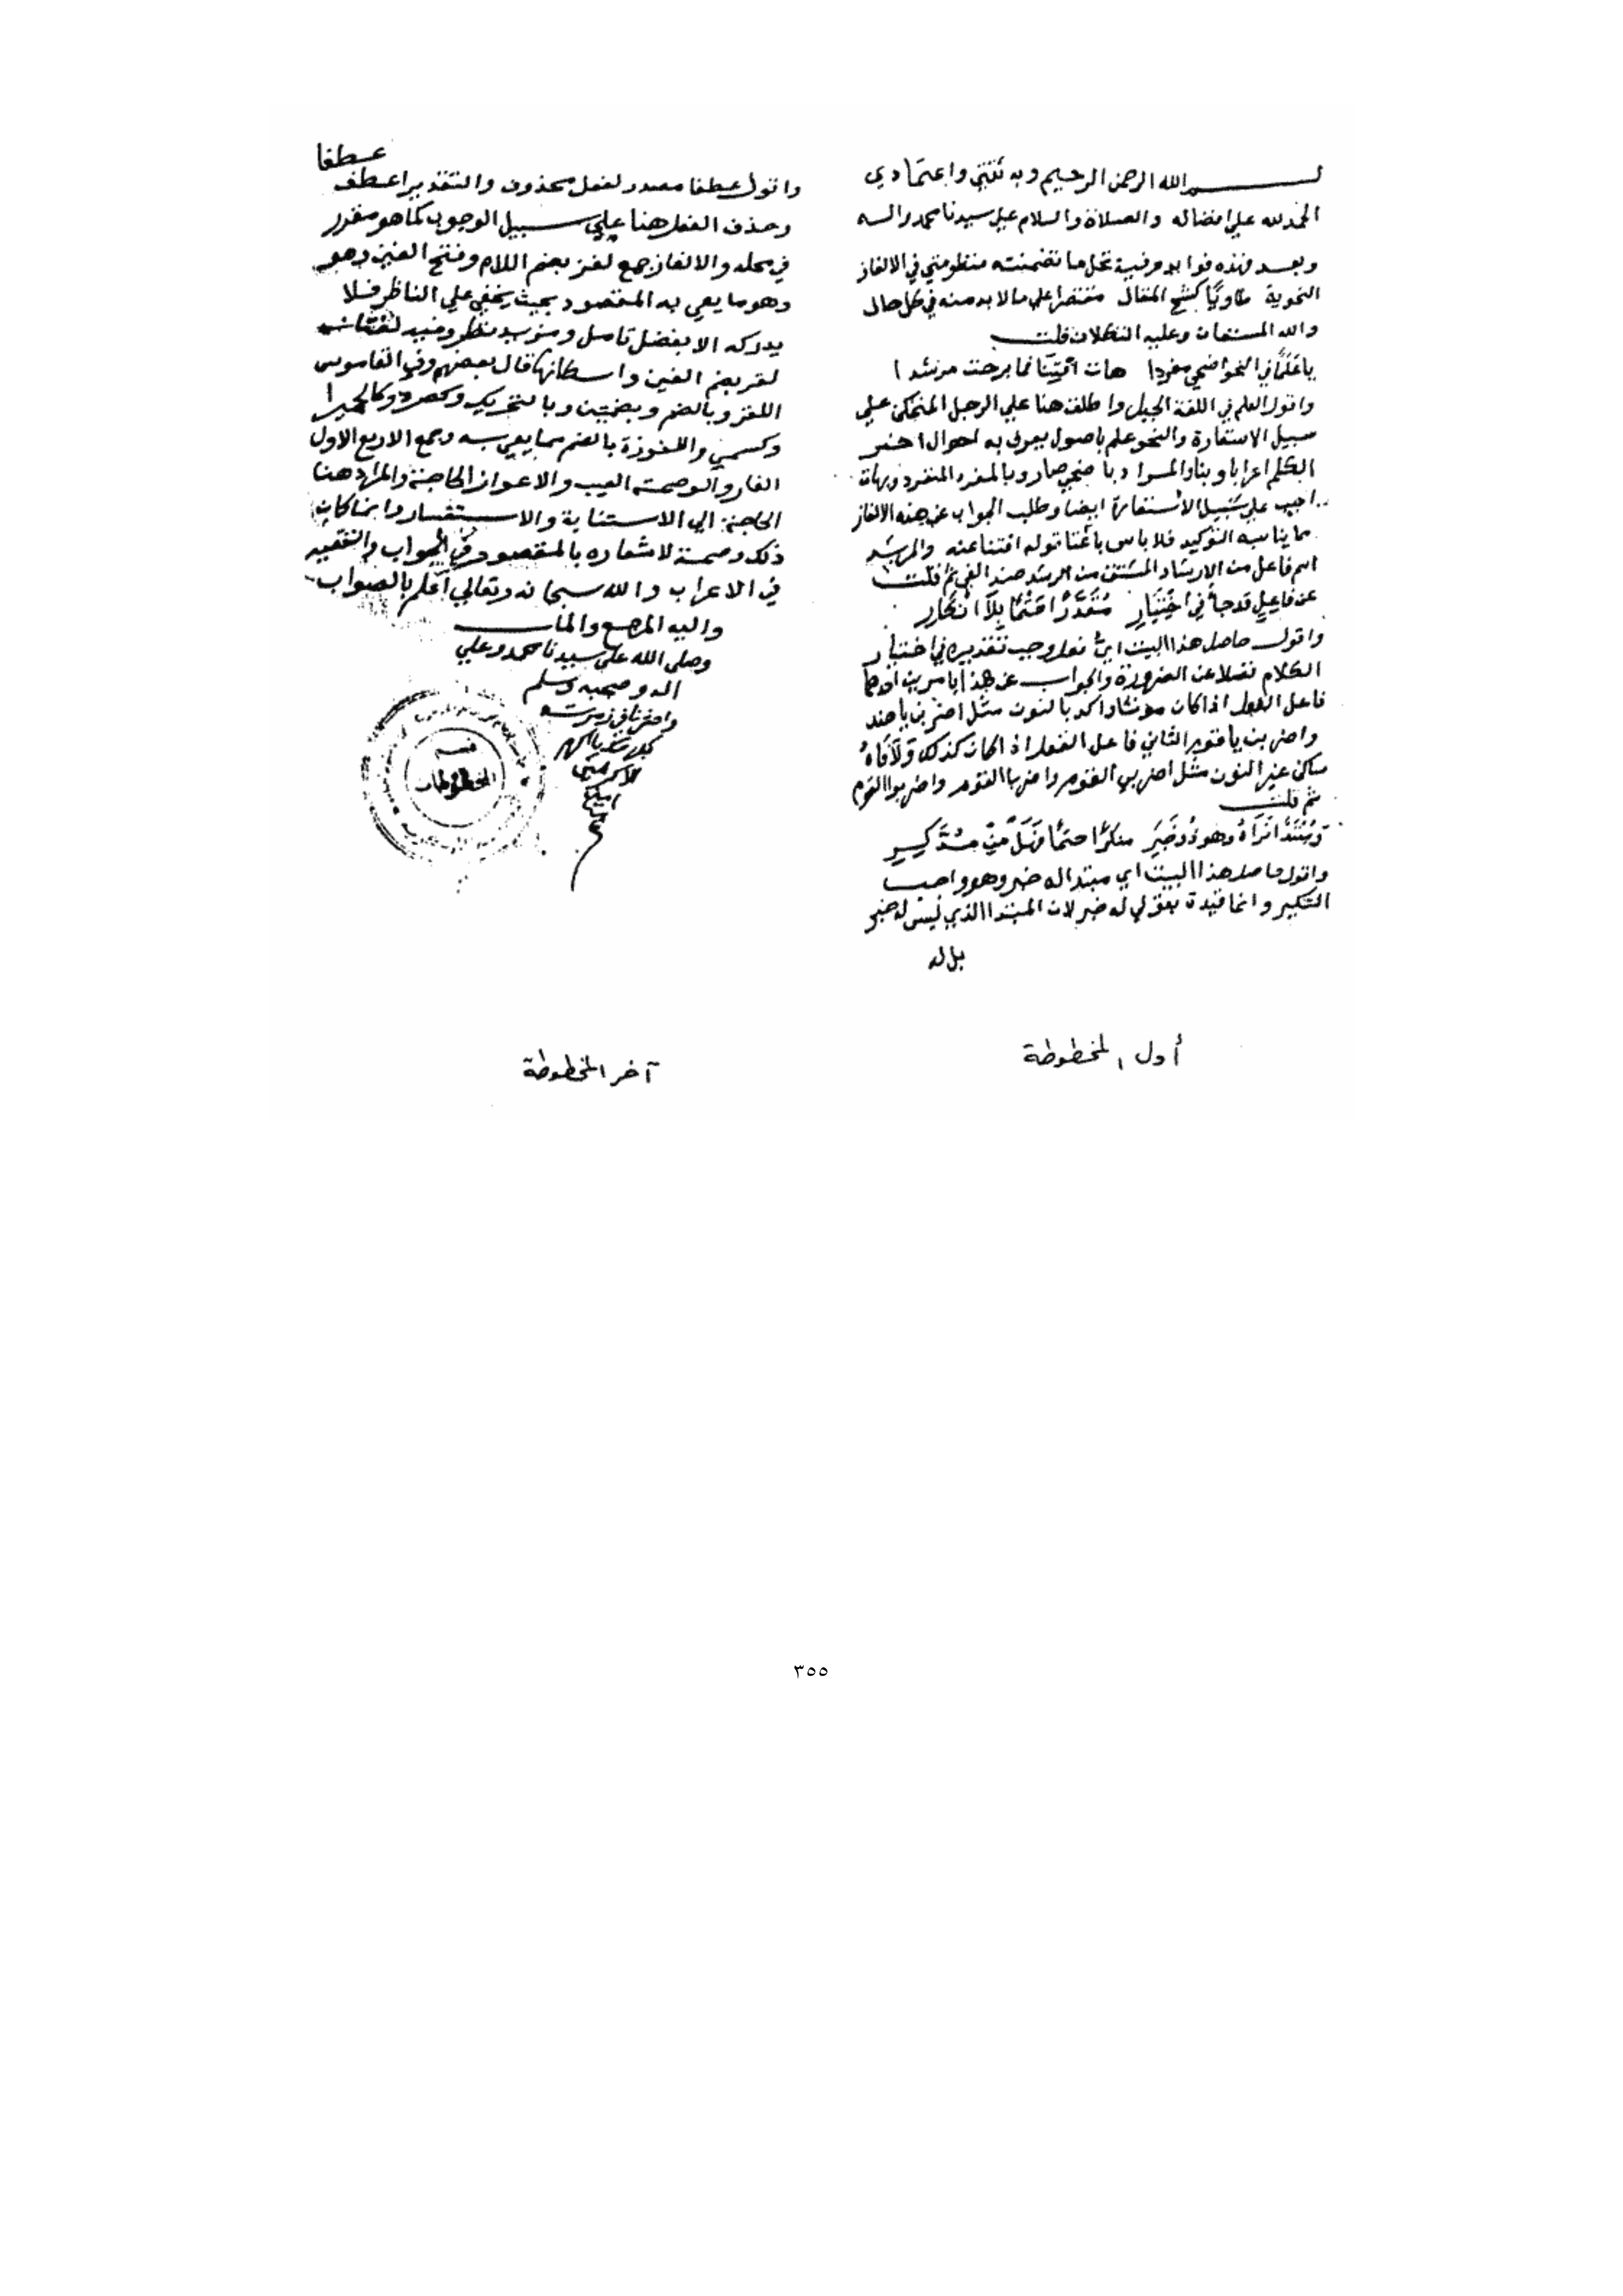 بسم الله الرحمن الرحيم وبه ثقتي واعتمادي
الحمد لله علي افضاله والصلاة والسلام علي سيدنا محمد واله
وبعد فهذه فوايد مرضية تحل ما تضمنته منظومتي في الالغاز
النحوية طاويًا كشح المقال مقتصرا علي ما لا بد منه في كل حال
والله المستعان وعليه التكلان قلت
ياعَلَمًا في النحو اضحي مفردا هات افتِنا فما برحت مرشدا
واقول العلم في اللغة الجبل واطلقت هنا علي الرجل المتمكن علي
سبيل الاستعارة والنحو علم باصول يعرف به احوال اخر
الكلم اعرابا وبناء والمراد باضحي صار وبالمفرد المنفرد وبهات
اجب علي سبيل الاستعارة ايضا وطلب الجواب عن هذه الالغاز
مما يناسبه التوكيد فلا باس باغتنا قوله افتنا عنه والمرشد
اسم فاعل من الارشاد المشتق من الرشد ضد الغي ثم قلت
عن فاعِلٍ قد جاء في اختيارِ مُقَدَّرًا حَتْمًا بِلا انْكارِ
واقول حاصل هذا البيت ايّ فعل وجب تقديره في اختيار
الكلام فضلا عن الضرورة والجواب عن هذا بامرين احدهما
فاعل الفعل اذا كان مؤنثا واكد بالنون مثل اضربن يا هند
واضربن يا قوم الثاني فاعل الفعل اذا كان كذلك ولاقاهُ
ساكن غير النون مثل اضربي القوم واضربا القوم واضربوا القوم
ثم قلت
ومُبْتَدًا نَراهُ وهو ذو خَبَر منكرًا حتمًا فهَل من مدّكِر
واقول حاصل هذا البيت اي مبتدا له خبر وهو واجب
التنكير وانما قيدة بقولي له خبر لان المبتدا الذي ليس له خبر
بل له
أول المخطوطة
عطفا
واقول عطفا مصدر لفعل محذوف والتقدير اعطف
وحذف الفعل هنا علي سبيل الوجوب كما هو مقرر
في محله والالغاز جمع لغز بضم اللام وفتح الغين وهو
وهو ما يعمي به المقصود بحيث يخفي علي الناظر فلا
يدركه الا بفضل تامل ومزيد نظر وفيه لغتان
لغز بضم الغين واسكانها قال بعضهم وفي القاموس
اللغز وبالضم وبضمتين وبالتحريك وكصرد وكالحميرا
وكسمهي واللغوزة بالضم ما يعمي به وجمع الاربع الاول
الغاز والوصمة العيب والاعواز الحاجة والمراد هنا
الحاجة الي الاستنابة والاستفسار وانما كان
ذلك وصمة لاشعاره بالمقصود في الجواب والتقصير
في الاعراب والله سبحانه وتعالي اعلم بالصواب
واليه المرجع والماب
وصلي الله علي سيدنا محمد وعلي
اله وصحبه وسلم
واحشرنا في زمرته
امين
قسم
المخطوطات
آخر المخطوطة
٣٥٥